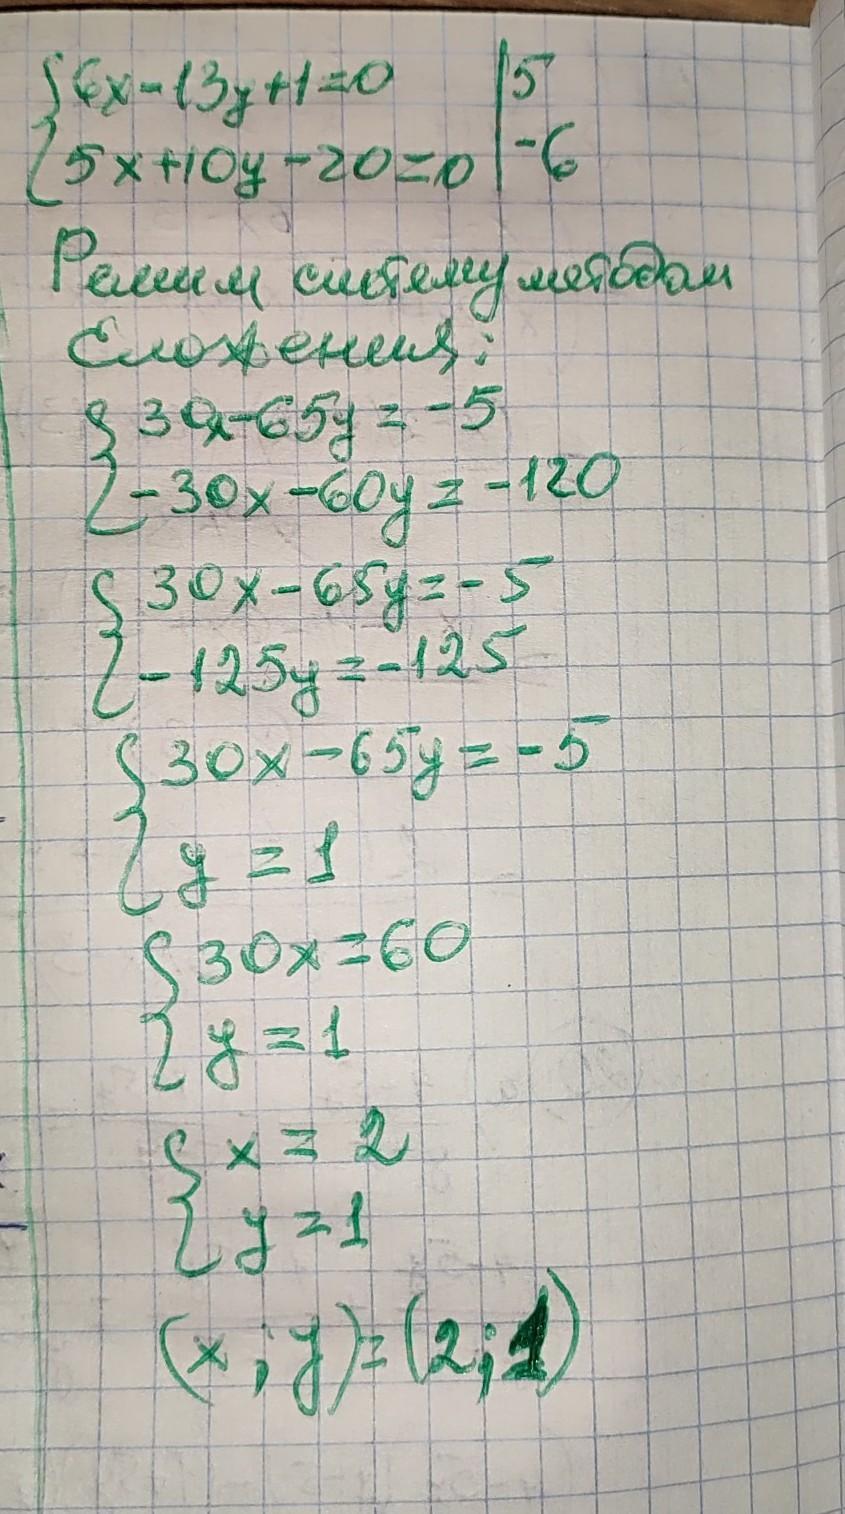 {6x-13y+1=0 |5
{5x+10y-20=0 |-6
Решим систему методом
сложения:
{30x-65y=-5
{-30x-60y=-120
{30x-65y=-5
{-125y=-125
{30x-65y=-5
{y=1
{30x=60
{y=1
{x=2
{y=1
(x;y)=(2;1)